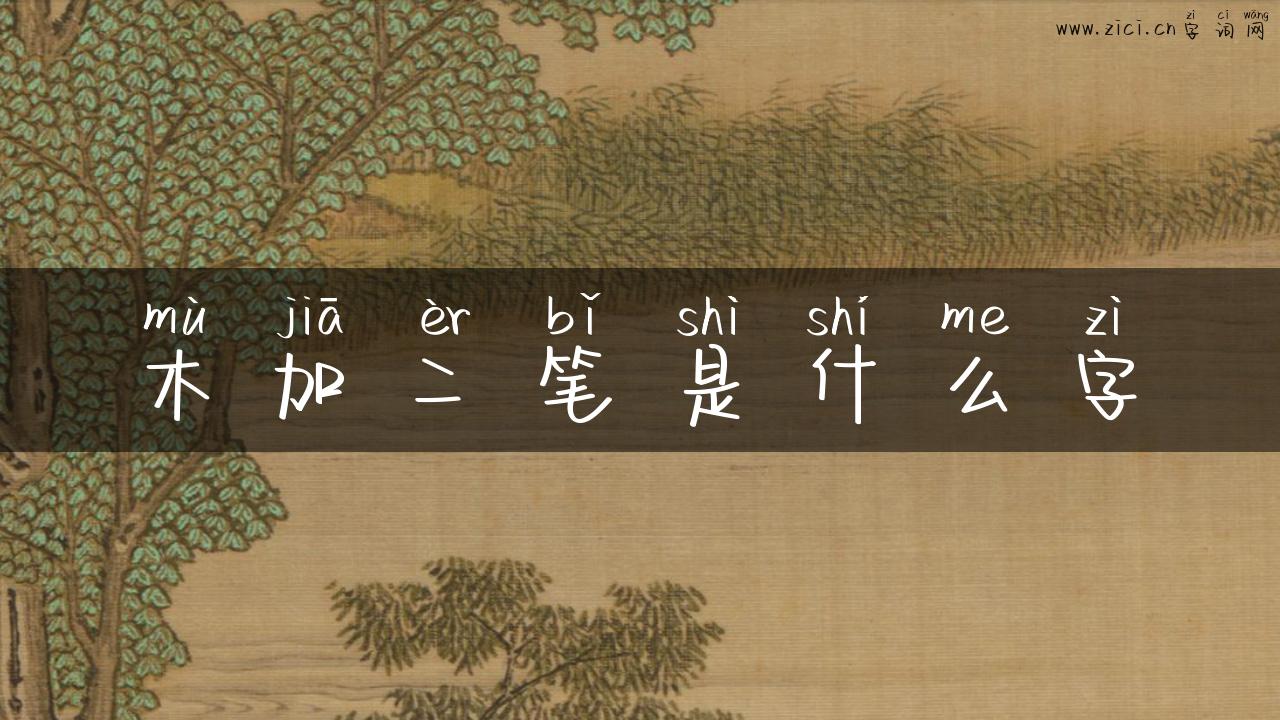 zì cí wǎng
www.zici.cn字词网
mù jiā èr bǐ shì shí me zì
木加二笔是什么字